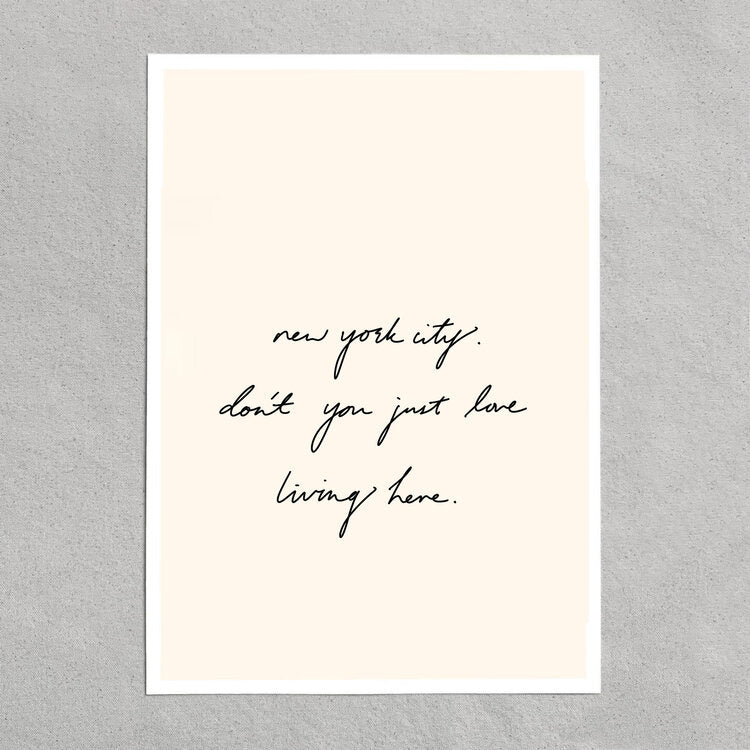 new york city.
don't you just love
living here.